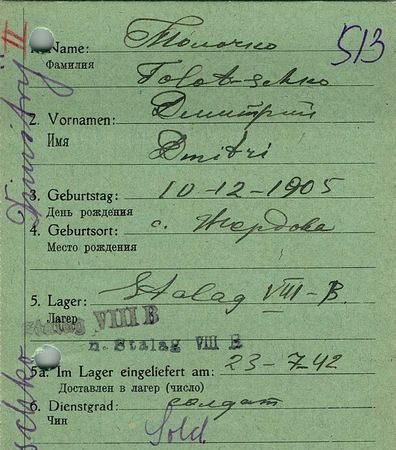 II
513
1. Name: Толочко
Фамилия
Tolot-schko
2. Vornamen: Дмитрий
Имя
Dmitri
3. Geburtstag: 10-12-1905
День рождения
4. Geburtsort: с. Жердова
Место рождения
5. Lager: Stalag VIII-B.
Лагер
Stalag VIII B
n. Stalag VIII B
5a. Im Lager eingeliefert am: 23-7-42
Доставлен в лагер (число)
6. Dienstgrad: солдат
Чин
Sold.